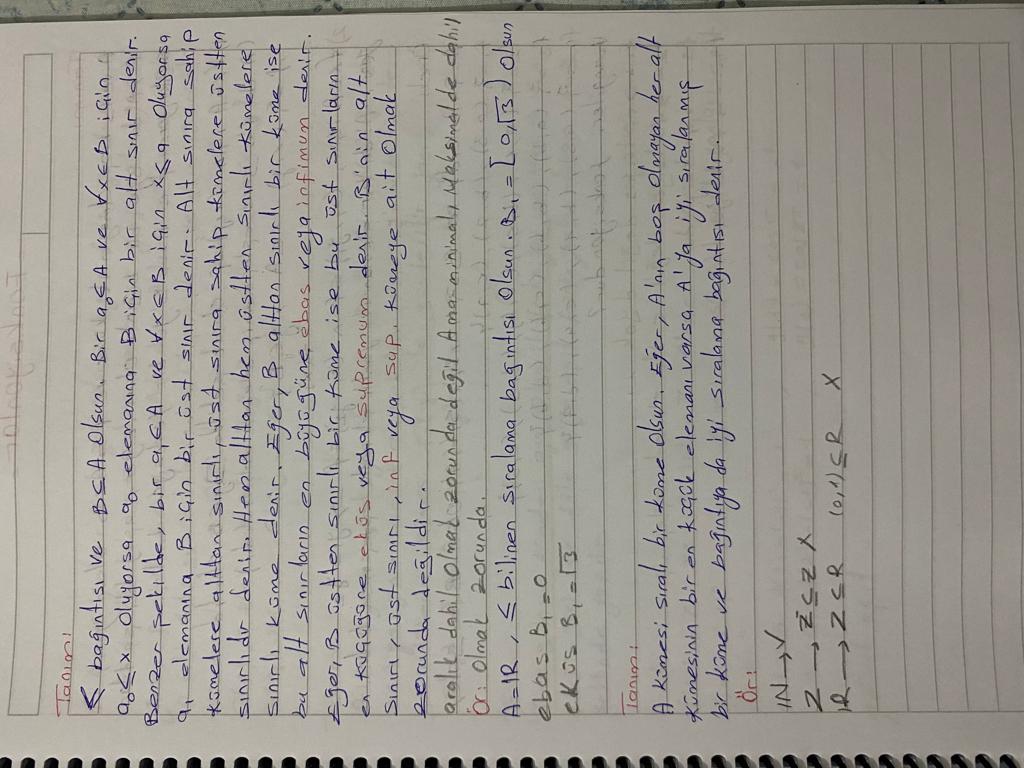 Tanım:
≤ bağıntısı ve B⊆A Olsun. Bir a₀∈A ve ∀x∈B için
a₀≤x Oluyorsa a₀ elemanına B için bir alt sınır denir.
Benzer şekilde, bir a₁∈A ve ∀x∈B için x≤a Oluyorsa
a₁ elemanına B için bir üst sınır denir. Alt sınıra sahip
kümelere alttan sınırlı, üst sınıra sahip kümelere üstten
sınırlıdır denir. Hem alttan hem üstten sınırlı kümelere
sınırlı küme denir. Eğer, B alttan sınırlı bir küme ise
bu alt sınırların en büyüğüne ebas veya infimun denir.
Eğer, B üstten sınırlı bir küme ise bu üst sınırların
en küçüğüne ekus veya supremum denir. B'nin alt
sınırı, üst sınırı, inf veya sup. kümeye ait Olmak
zorunda değildir.
aralık dahil Olmak zorunda değil Ama minimal, Maksimalde dahil
Ör: Olmak zorunda.
A=ℝ, ≤ bilinen sıralama bağıntısı Olsun. B₁ = [0,√3) Olsun
ebas B₁ = 0
ekus B₁ = √3
Tanım:
A kümesi sıralı bir küme Olsun. Eğer, A'nın boş olmayan her alt
kümesinin bir en küçük elemanı varsa A'ya iyi sıralanmış
bir küme ve bağıntıya da iyi sıralama bağıntısı denir.
Ör:
ℕ → √
Z → Z⊆Z X
ℝ → Z⊆R (0,1)⊆R X